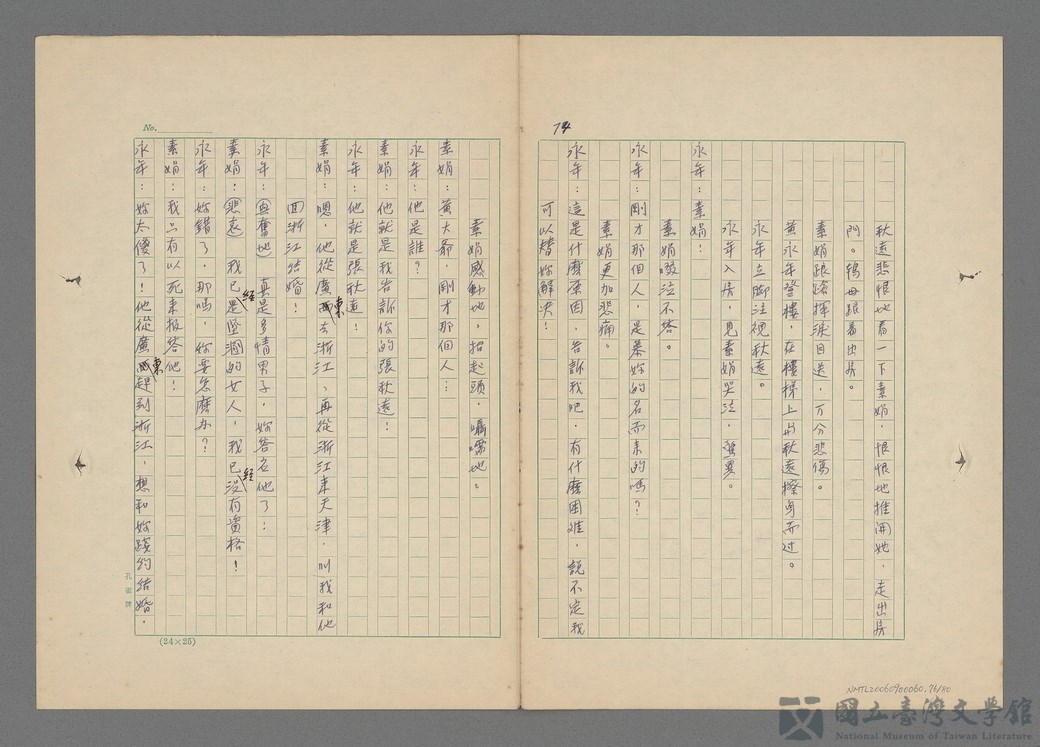 74
秋遠悲恨地看一下素娟，恨恨地推開她，走出房
門。鴇母跟着出房。
素娟跟踉揮淚目送，万分悲傷。
黃永年登樓，在樓梯上与秋遠擦身而过。
永年立脚注視秋遠。
永年入房，見素娟哭泣，驚異。
永年：素娟！
素娟啜泣不答。
永年：剛才那個人，是慕妳的名而来的嗎？
素娟更加悲痛。
永年：這是什麼原因，告訴我吧，有什麼困难，說不定我
可以替妳解決！
No.
素娟感動地，抬起頭，囁嚅地。
素娟：黃大爺，剛才那個人…
永年：他是誰？
素娟：他就是我告訴你的張秋遠！
永年：他就是張秋遠！
素娟：嗯，他從廣東去浙江，再從浙江来天津，叫我和他
回浙江结婚！
永年：（興奮地）真是多情男子，妳答应他了！
素娟：（悲哀）我已經是墜溷的女人，我已經没有資格！
永年：妳錯了，那嗎，你要怎麼办？
素娟：我只有以死来报答他！
永年：妳太傻了！他從廣東趕到浙江，想和妳踐約结婚，
孔雀牌
(24×25)
NMTL20060900060.76/80
國立臺灣文学館
National Museum of Taiwan Literature